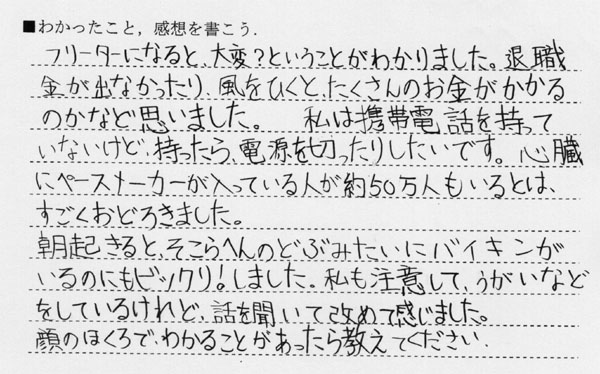 ■わかったこと，感想を書こう.
フリーターになると、大変？ということがわかりました。退職
金が出なかったり、風をひくと、たくさんのお金がかかる
のかなど思いました。　私は携帯電話を持って
いないけど、持ったら、電源を切ったりしたいです。心臓
にペースメーカーが入っている人が約50万人もいるとは、
すごくおどろきました。
朝起きると、そこらへんのどぶみたいにバイキンが
いるのにもビックリ！しました。私も注意して、うがいなど
をしているけれど、話を聞いて改めて感じました。
顔のほくろでわかることがあったら教えてください.